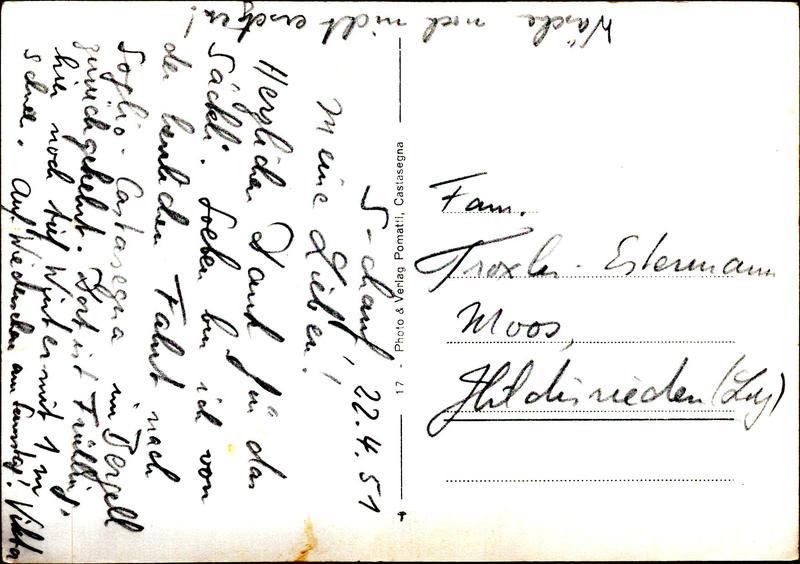 S-chanf, 22.4.51
Meine Lieben!
Herzlichen Dank für das
Säckli. Soeben bin ich von
der herrlichen Fahrt nach
Soglio-Castasegna im Bergell
zurückgekehrt. Dort ist Frühling,
hier noch tief Winter mit 1 m
Schnee. Auf Wiedersehen am Samstag! Viktor
Wäsche noch nicht
17 - Photo & Verlag Pomatti, Castasegna
Fam.
Troxler-Estermann
Moos,
Hildisrieden (Luz)